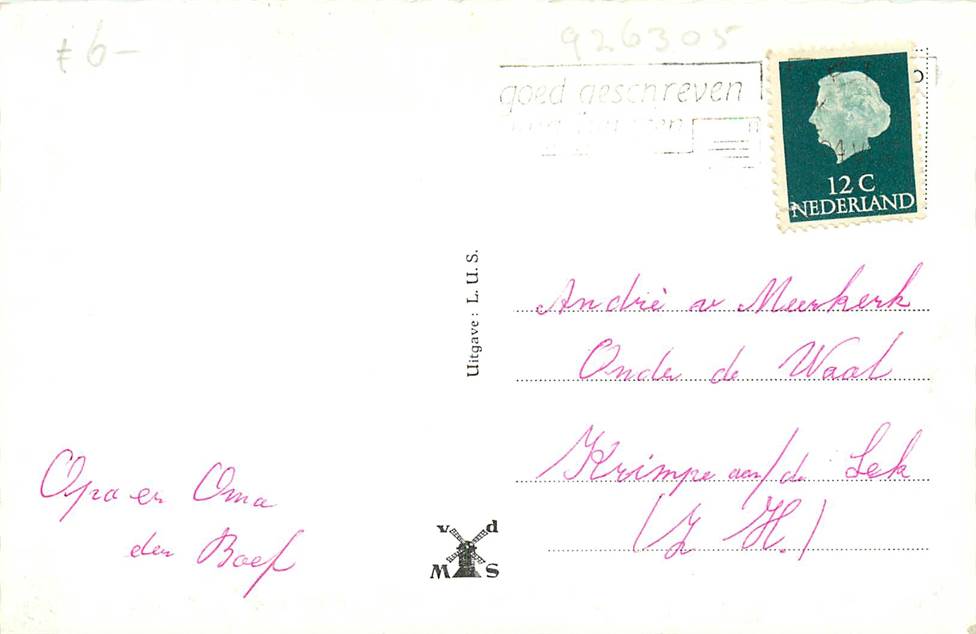 f 6-
926305
goed geschreven
12 C
NEDERLAND
Uitgave: L. U. S.
Andrè v Meerkerk
Onder de Waal
Krimpe aan/de Lek
(Z H.)
Opa en Oma
den Boef
v d
M S